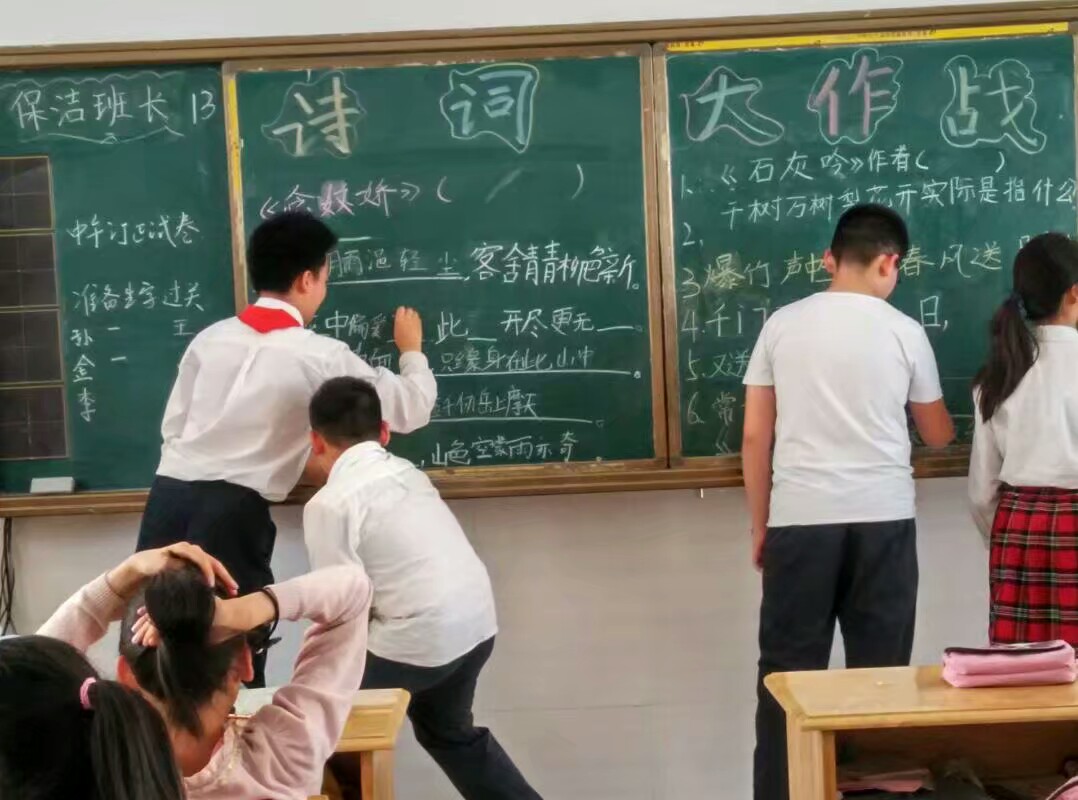 保洁班长 13
中午订正试卷
准备生字过关
孙 一 王
金 一
李
诗词
《念奴娇》( )
雨浥轻尘,客舍青青柳色新。
中偏爱 此 开尽更无 。
只缘身在此山中 。
千仞岳上摩天 。
,山色空蒙雨亦奇
大作战
1. 《石灰吟》作者( )
千树万树梨花开实际是指什么
2.
3 爆竹声中 春风送
4. 千门 日,
5. 又送
6. 常